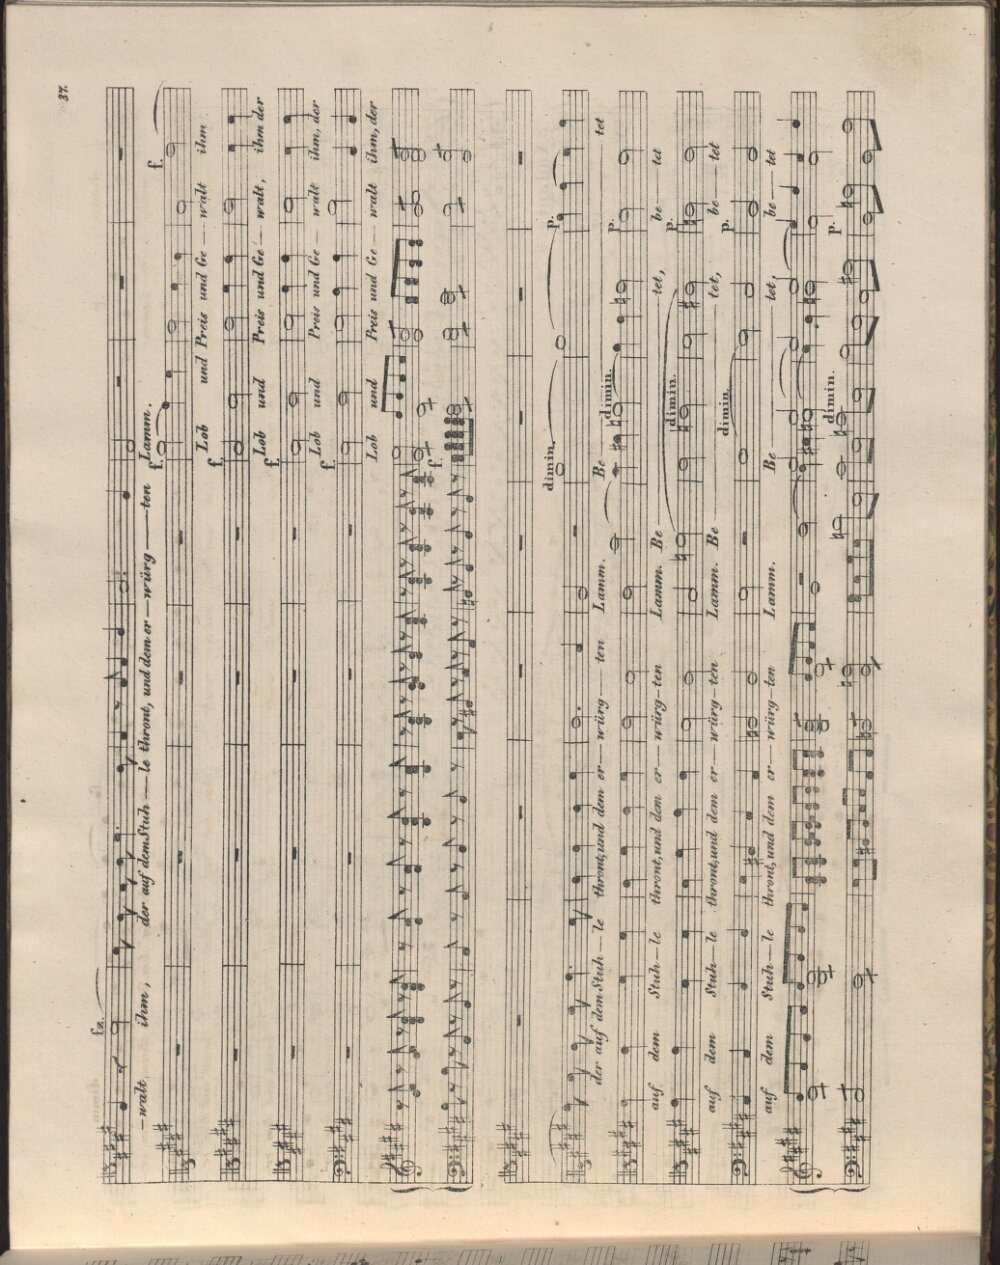 37.
fz.
— walt ihm, der auf dem Stuh — le thront, und dem er — würg — ten Lamm.
f. f.
Lob und Preis und Ge — walt ihm
f.
Lob und Preis und Ge — walt, ihm der
f.
Lob und Preis und Ge — walt ihm, der
f.
Lob und Preis und Ge — walt ihm, der
f.
dimin. p.
der auf dem Stuh — le thront, und dem er — würg — ten Lamm. Be — tet
dimin. p.
auf dem Stuh — le thront, und dem er — würg — ten Lamm. Be — tet, be — tet
dimin. p.
auf dem Stuh — le thront, und dem er — würg — ten Lamm. Be — tet, be — tet
dimin. p.
auf dem Stuh — le thront, und dem er — würg — ten Lamm. Be — tet, be — tet
dimin. p.